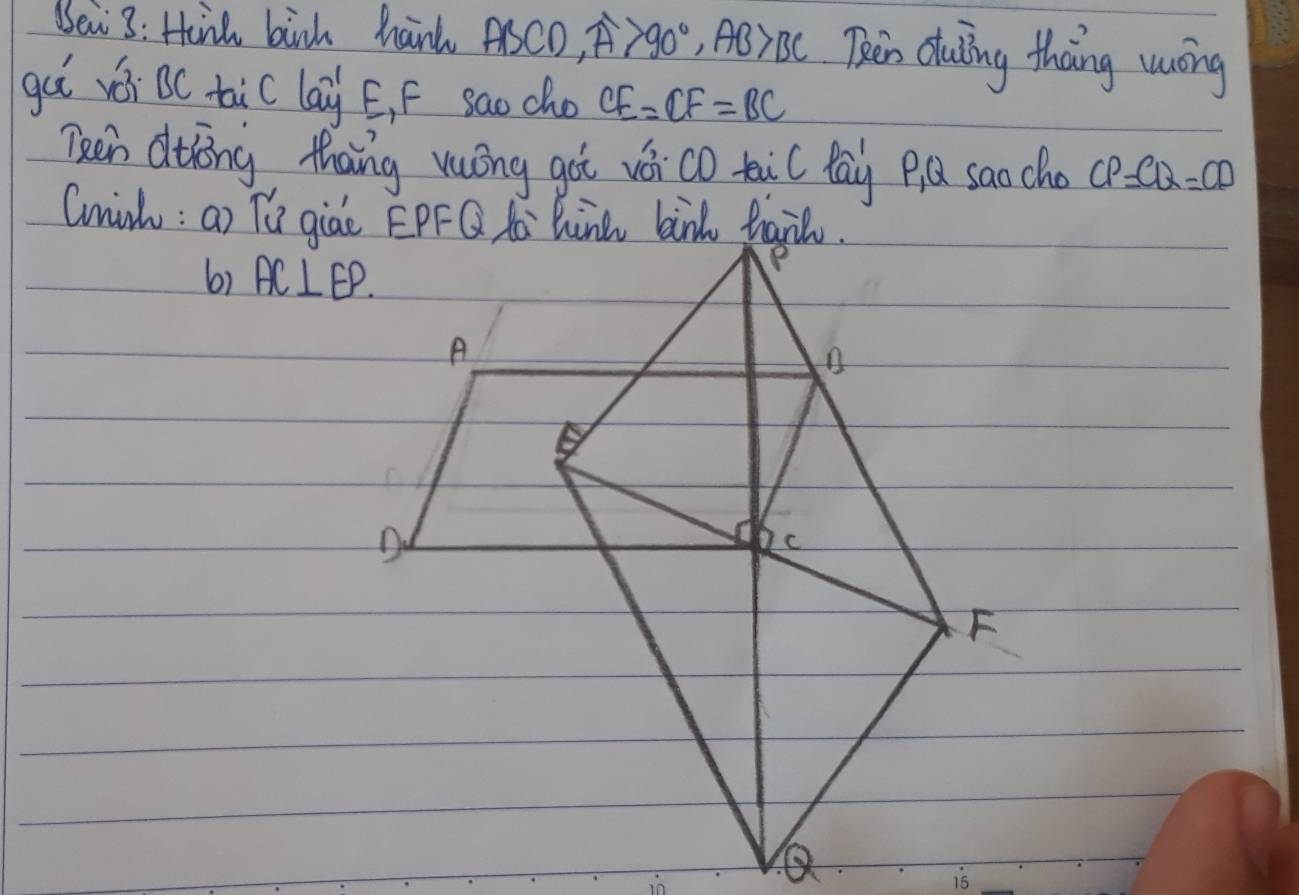 Bài 3: Hình bình hành ABCD, Â>90°, AB>BC. Trên đường thẳng vuông
góc với BC tại C lấy E, F sao cho CE=CF=BC
Trên đường thẳng vuông góc với CD tại C lấy P,Q sao cho CP=CQ=CD
Cminh: a) Tứ giác EPFQ là hình bình hành.
b) AC⊥EP.
P
A
B
E
D
C
F
Q
10
15